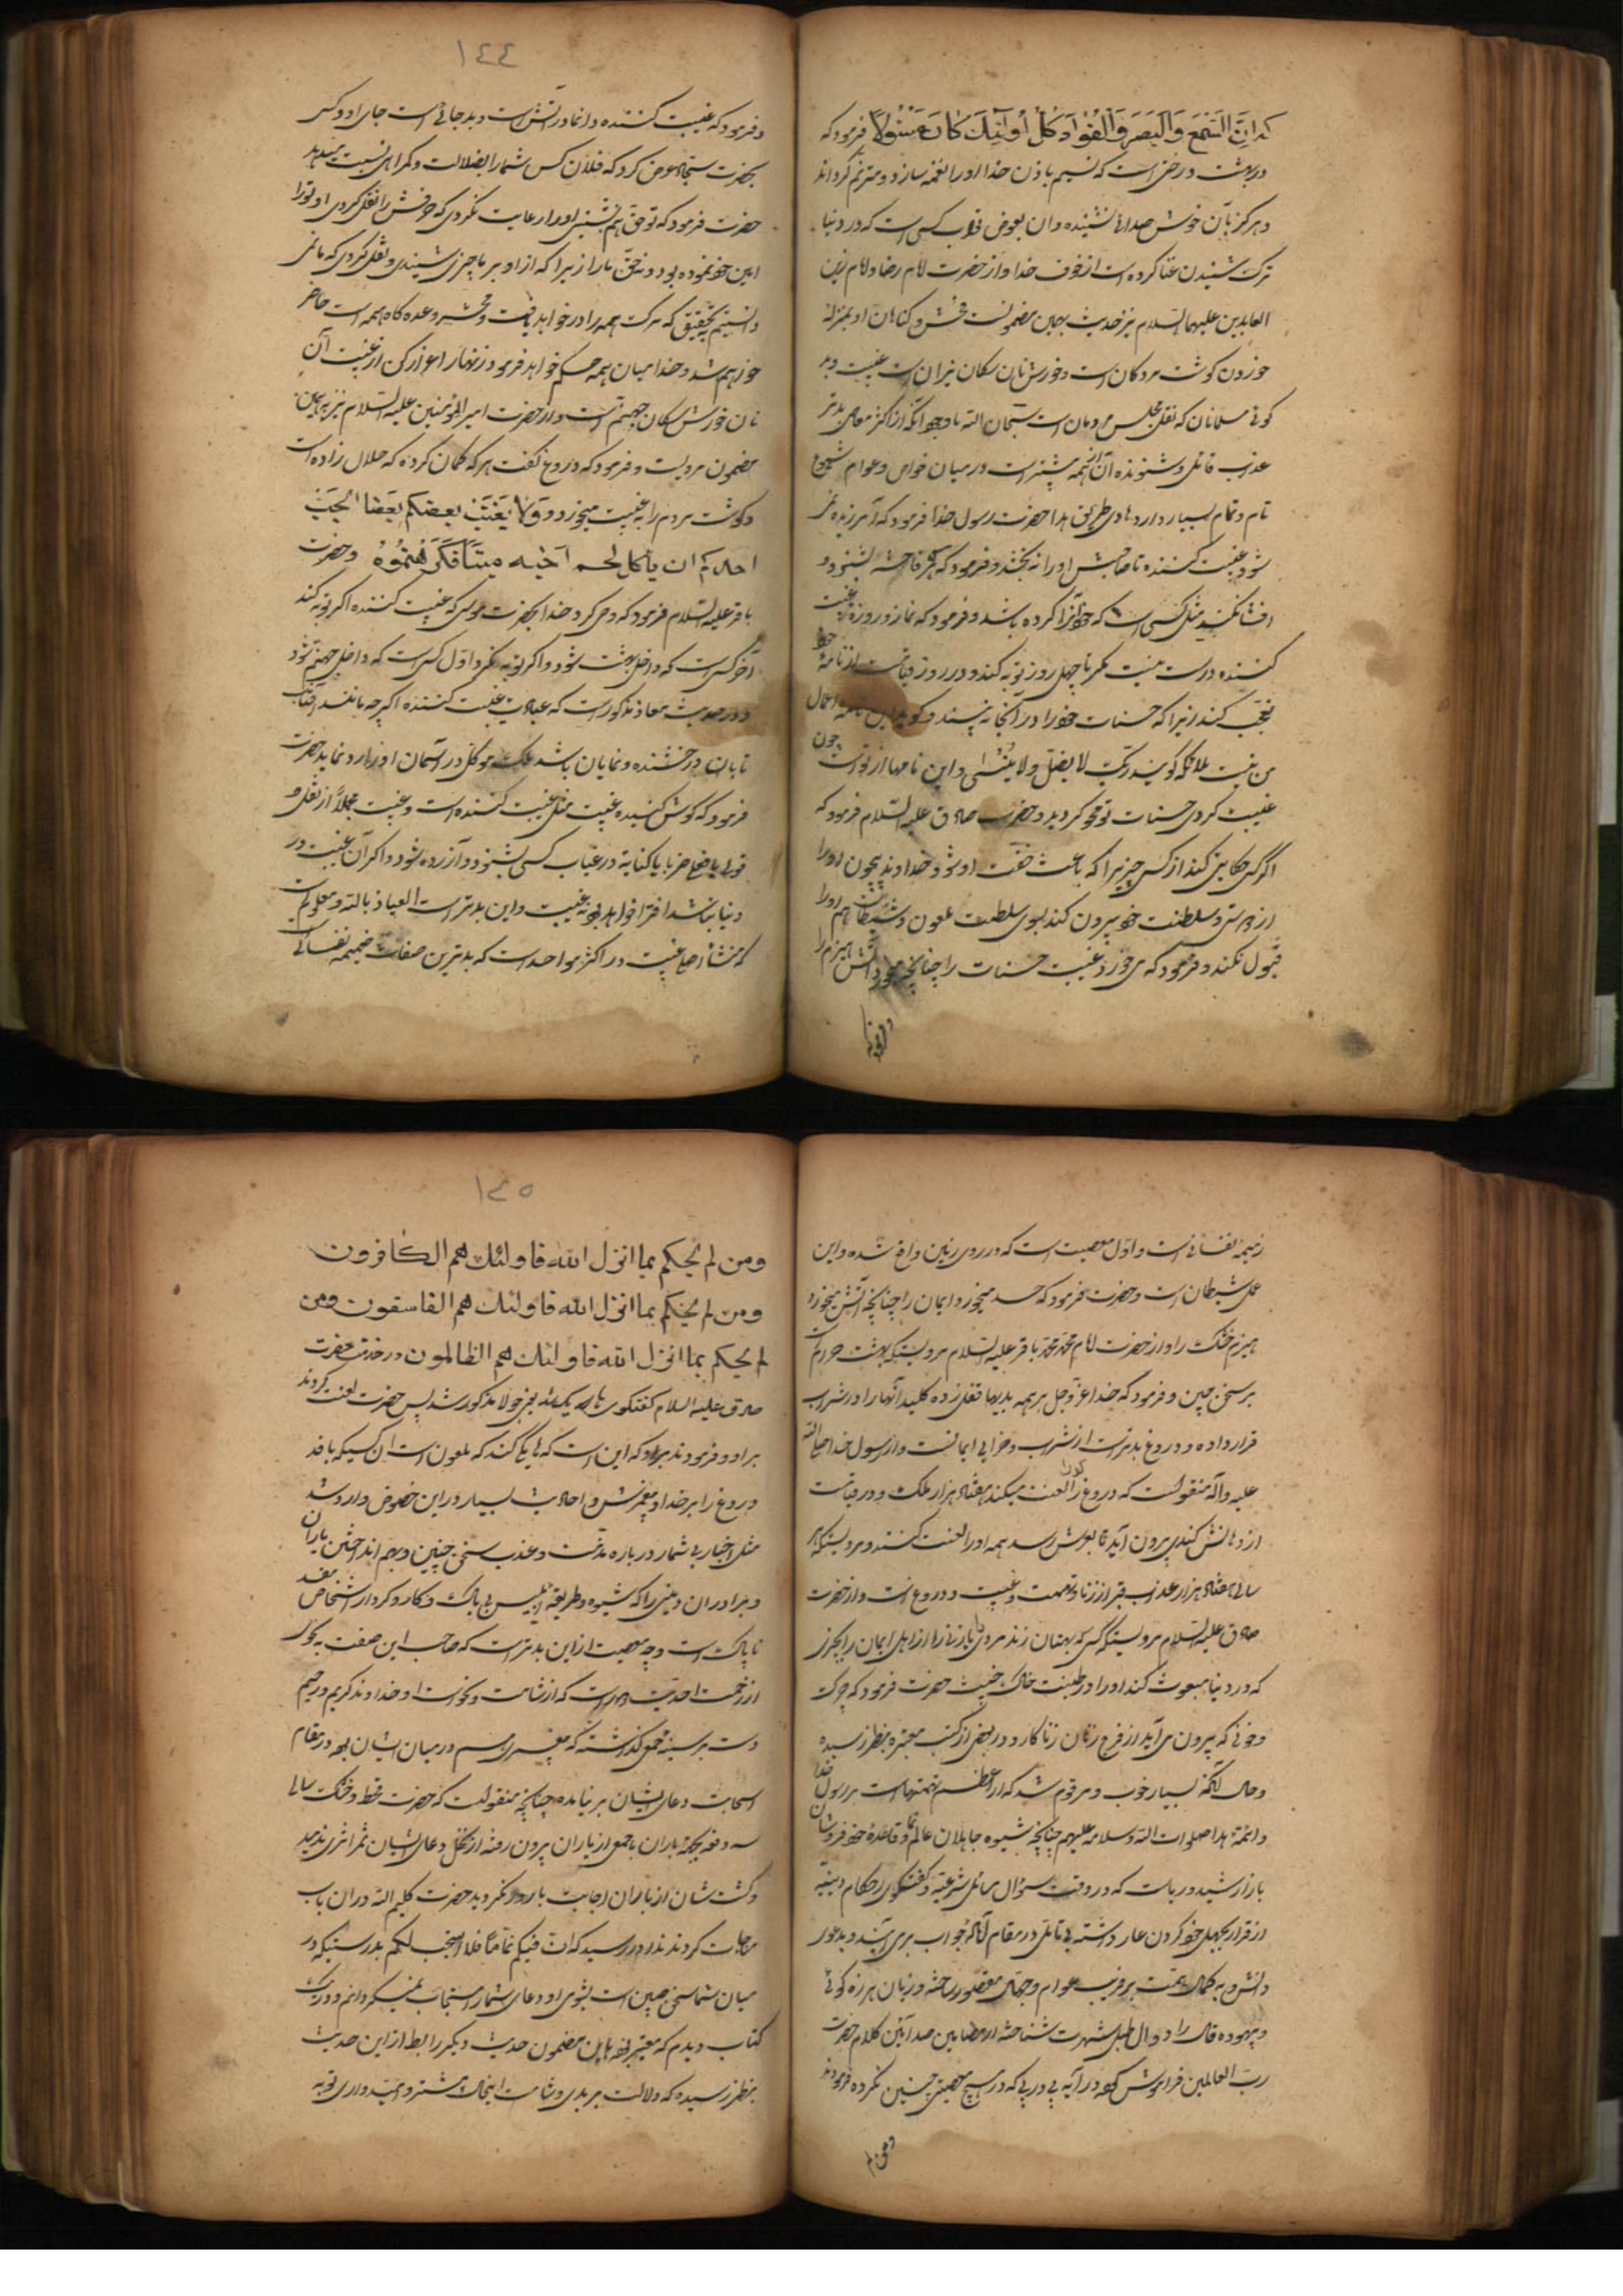 که اِنَّ السَّمْعَ وَالْبَصَرَ وَالْفُؤَادَ كُلُّ أُولَٰئِكَ كَانَ عَنْهُ مَسْئُولًا فرمود که
در بهشت درختی است که نسیم باذن خدا او را نغمه سازد و مترنم گرداند
و هرگز بآن خوش صدائی نشنیده و آن بعوض ثواب کسی است که در دنیا
ترک شنیدن غنا کرده است از خوف خدا و از حضرت امام رضا و امام زین
العابدین علیهما السلام نیز حدیث بهمین مضمونست فحش و گناهان او بمنزله
خوردن گوشت مردگان است و خورش نان سگان نیران است غیبت و بد
گوئی مسلمانان که نقل مجلس مردمان است سبحان الله با وجود آنکه از اکثر معاصی بدتر
عذاب قائل و شنونده آن از همه بیشتر است در میان خواص و عوام شیوع
تام و تمام بسیار دارد هادی طریق هدا حضرت رسول خدا فرمود که آمرزیده نمی
شود غیبت کننده تا صاحبش او را نه بخشد و فرمود که هر که فاحشه بشنود و
افشا نکند مثل کسی است که خود آنرا کرده باشد و فرمود که نماز و روزه غیبت
کننده درست نیست مگر تا چهل روز توبه کند و در روز قیامت از نامهٔ خود
تعجب کند زیرا که حسنات خود را در آنجا نه بیند و گوید این نامه اعمال
من نیست ملائکه گویند ربک لا یضل و لا ینسی و این نامها از تو است چون
غیبت کردی حسنات تو محو گردید و حضرت صادق علیه السلام فرمود که
اگر کسی حکایتی کند از کسی چیزیرا که باعث خفت او شود خداوند بیچون او را
از دوستی و سلطنت خود بیرون کند بسوی سلطنت ملعون و شیطان هم او را
قبول نکند و فرمود که می خورد غیبت حسنات را چنانچه میخورد آتش هیزم را
و فرمود
١٤٤
و فرمود که غیبت کننده دائما در آتش است و بد جائی است جای او و کسی
بحضرت سجاد عرض کرد که فلان کس شما را بضلالت و گمراهی نسبت میدهد
حضرت فرمود که تو حق هم نشینی او را رعایت نکردی که حرفش را نقل کردی او تو را
امین خود نموده بود و نه حق ما را زیرا که از او بر ما چیزی شنیدی و نقل کردی که ما نمی
دانستیم بتحقیق که مرگ همه را در خواهد یافت و محشر وعده گاه همه است حاضر
خواهیم شد و خدا میان همه حکم خواهد فرمود زنهار احتراز کن از غیبت آن
نان خورش سگان جهنم است و از حضرت امیر المؤمنین علیه السلام نیز بهمین
مضمون مرویست و فرمود که دروغ گفت هر که گمان کرده که حلال زاده است
و گوشت مردم را به غیبت میخورد وَلَا يَغْتَبْ بَعْضُكُمْ بَعْضًا أَيُحِبُّ
احدکم ان یأکل لحم اخیه میتا فکرهتموه و حضرت
باقر علیه السلام فرمود که وحی کرد خدا بحضرت موسی که غیبت کننده اگر توبه کند
آخر کسی است که داخل بهشت شود و اگر توبه نکرد اول کسی است که داخل جهنم شود
و در حدیث معاذ مذکور است که عبادت غیبت کننده اگر چه مانند آفتاب
تابان درخشنده و نمایان باشد ملک موکل در آسمان او را رد نماید حضرت
فرمود که گوش کننده غیبت مثل غیبت کننده است و غیبت مجملا از نقل
قولی یا فعلی یا کنایة در غیاب کسی بشنود و آزرده شود و اگر آن غیبت در
دنیا نباشد افترا خواهد بود نه غیبت و این بدتر است العیاذ بالله و معلوم است
که منشأ اصل غیبت در اکثر مواد حسد است که بدترین صفات ذمیمه نفسانی
ذمیمه نفسانی است و اول معصیت است که در روی زمین واقع شده و این
عمل شیطان است و حضرت فرمود که حسد میخورد ایمان را چنانچه آتش میخورد
هیزم خشک را و از حضرت امام محمد باقر علیه السلام مرویستکه بهشت حرام است
بر سخن چین و فرمود که خدا عز و جل بر همه بدیها قفلی زده کلید آنها را در شراب
قرار داده و دروغ بدتر است از شراب و خرابی ایمانست و از رسول خدا صلی الله
علیه و آله منقولست که دروغ گو را لعنت میکند هفتاد هزار ملک و در قیامت
از دهانش گندی بیرون آید تا بعرش رسد همه او را لعنت کنند و مرویستکه هر
سالی هفتاد هزار عذاب قبر از زنا و تهمت و غیبت و دروغ است و از حضرت
صادق علیه السلام مرویستکه کسی که بهتان زند مردی یا زنی را از اهل ایمان را بچیزی
که در دنیا مبعوث کند او را در طینت خاک خبیث حضرت فرمود که چرک
و خونی که بیرون می آید از فرج زنان زناکار و در بعضی از کتب معتبره بنظر رسیده
و حال آنکه بسیار خوب و مرقوم شد که از اعظم تهمتهاست بر رسول خدا
و ائمه هدا صلوات الله و سلامه علیهم چنانچه شیوه جاهلان عالم نما و قاعده خود فروشان
بازار شید و ریاست که در وقت سؤال مسائل شرعیه و گفتگوی احکام دینیه
از قرار بجهل خود کردن عار داشته بی تأمل در مقام آن جواب برمی آیند و بدعوی
دانش و به کمال همت بر فریب عوام و جهال مقصور ساخته و زبان هرزه گوئی
و بیهوده قال را دوال طبل شهرت شناخته از مضامین صدا آئین کلام حضرت
رب العالمین فراموش کرده در آیه پی در پی که در هیچ معصیتی چنین نکرده فرمودند
و من لم
١٤٥
ومن لم یحکم بما انزل الله فاولئک هم الکافرون
ومن لم یحکم بما انزل الله فاولئک هم الفاسقون ومن
لم یحکم بما انزل الله فاولئک هم الظالمون در خدمت حضرت
صادق علیه السلام گفتگوی مذکور شد پس حضرت لعنت کردند
بر او و فرمودند که این است که ملعون است آن کسیکه بافد
دروغ را بر خدا و پیغمبرش و احادیث بسیار در این خصوص وارد شد
مثل اخبار بی شمار درباره مذمت و عذاب سخن چینی و بهم انداختن یاران
و برادران دینی را که شیوه و طریقه ابلیس بی باک و کار و کردار اشخاص مفسد
ناپاک است و چه معصیت از این بدتر است که صاحب این صفت
از رحمت احدیت دور است که از شئامت و نحوست او خداوند کریم و رحیم
دست بر سینه جمعی گذاشته که پیغمبری هم در میان ایشان بود در مقام
استجابت دعای ایشان بر نیامده چنانچه منقولست که حضرت قحط و خشک سالی
سه دفعه بجهة باران با جمعی از یاران بیرون رفته از نخل دعای ایشان ثمر اثری ندمید
و کشت شان از باران اجابت بارور نگردید حضرت کلیم الله در آن باب
مناجات کردند ندا در رسید که ان فیکم نماما فلا استجب لکم بدرستیکه در
میان شما سخن چین است بشومی او دعای شما را مستجاب نمیگردانم و در یک
کتاب دیدم که معتبر بود باین مضمون حدیث دیگر را بط از این حدیث
بنظر رسیده که دلالت بر بدی و شئامت اینجمله بیشتر و امیدواری توبه